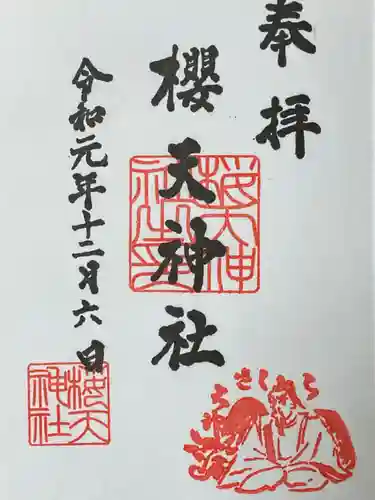 奉拝
櫻天神社
令和元年十二月六日
櫻天神社印
櫻天神社
さくら